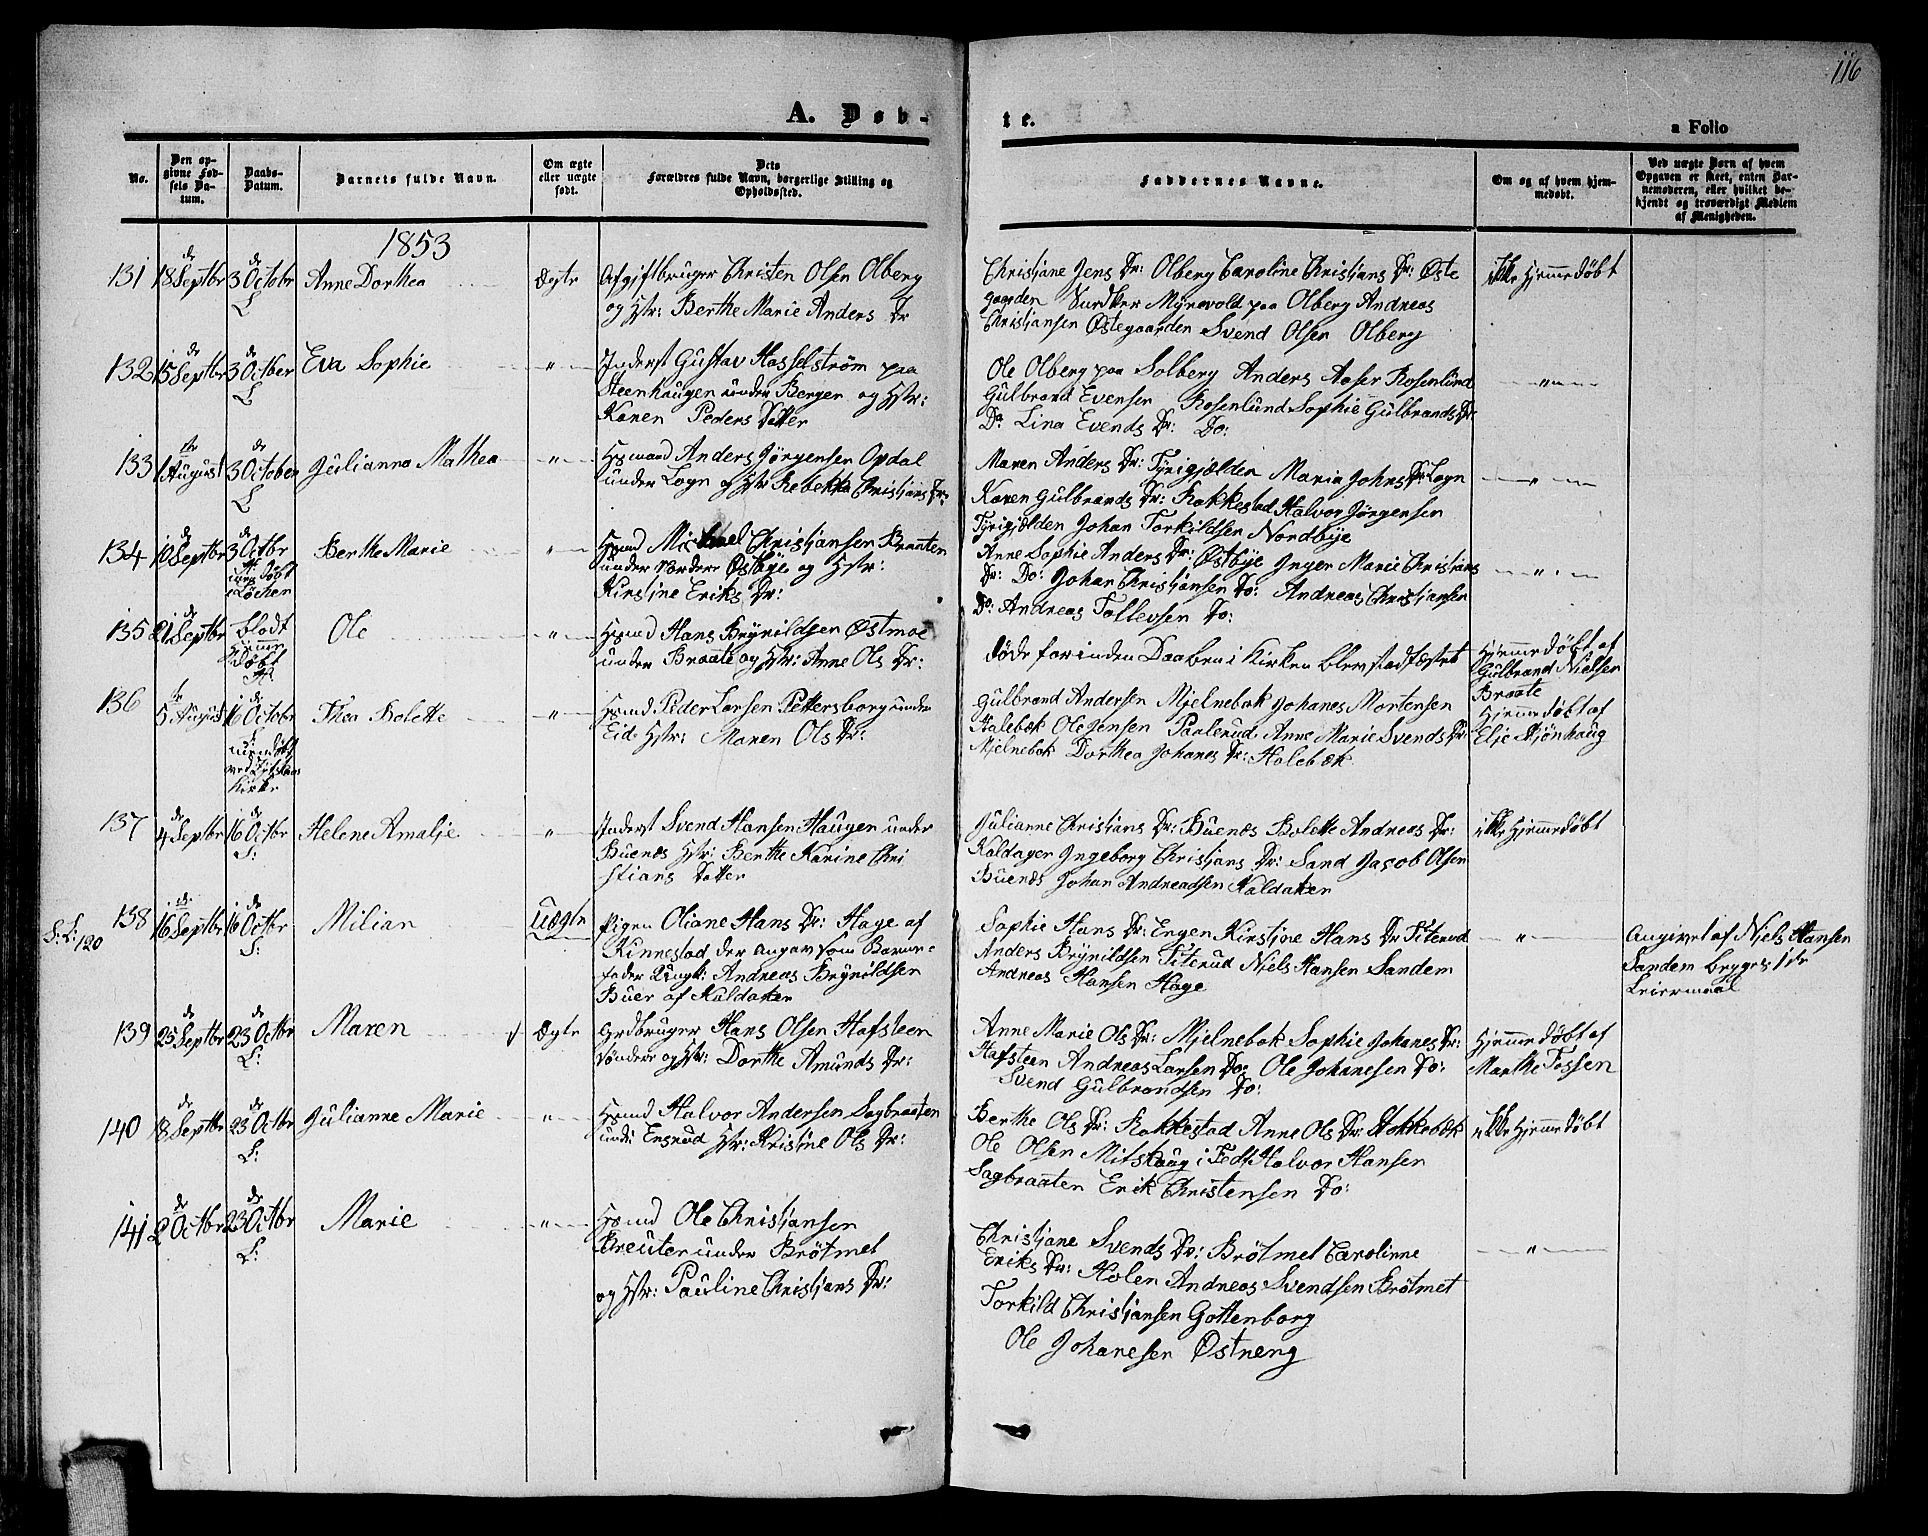 116
A. Døb-
te.
a Folio
No.
Den op-
givne Fød-
sels Da-
tum.
Daabs-
Datum.
Barnets fulde Navn.
Om ægte
eller uægte
født.
Dets
Forældres fulde Navn, borgerlige Stilling og
Opholdssted.
Faddernes Navne.
Om og af hvem hjem-
medøbt.
Ved uægte Børn af hvem
Opgaven er skeet, enten Bar-
nemoderen, eller hvilket be-
kjendt og troværdigt Medlem
af Menigheden.
1853
131
de
18 Septbr
de
3 Octobr
L
Anne Dorthea
Ægte
Afgiftbruger Christen Olsen Olberg
og Hstr: Berthe Marie Anders Dr
Christjane Jens Dr: Olberg Caroline Christjans Dr: Øste
gaarden Myrevold paa Olberg Andreas
Christjansen Østegaarden Svend Olsen Olberg
ikke Hjemmedøbt
132
de
15 Septbr
de
3 October
L
Eva Sophie
"
Inderst Gustav Hasselstrøm paa
Steenhaugen under Berger og Hstr:
Karen Peders Datter
Ole Olberg paa Solberg Anders Aaser Rosenlund
Gulbrand Evensen Rosenlund Sophie Gulbrands Dr:
Do Lina Evends Dr: Do:
"
133
1 August
de
3 October
L
Julianna Mathea
"
Hsmand Anders Jørgensen Opdal
under Logn og Hstr Rebekka Christjans Dr:
Maren Anders Dr: Tyrigjelden Maria Johns Dr Logn
Karen Gulbrands Dr: Rakkestad Halvor Jørgensen
Tyrigjelden Johan Torkildsen Nordbye
"
134
de
10 Septbr
de
3 Octbr
døbt
Berthe Marie
"
Hsmd Michael Christjansen Braaten
under Nordere Østbye og Hstr:
Kirstine Eriks Dr:
Anne Sophie Anders Dr: Østbye Inger Marie Christjans
Dr: Do: Johan Christjansen Do: Andreas Christjansen
Do: Andreas Tollevsen Do:
"
135
de
21 Septbr
blodt
Hjemme
døbt
Ole
"
Hsmd Hans Brynildsen Østmoe
under Braate og Hstr: Anne Ols Dr:
døde forinden Daaben i Kirken blev stadfæstet
Hjemmedøbt af
Gulbrand Nielsen
Braate
136
5 August
de
16 Octobr
Kirke
Thea Bolette
"
Hsmd Peder Larsen Pettersborg under
Eid Hstr: Maren Ols Dr:
Gulbrand Andersen Mjelnebak Johanes Mortensen
Halebæk Ole Jensen Paalerud Anne Marie Svends Dr
Mjelnebak Dorthea Johanes Dr: Holebæk
Hjemmedøbt af
Elje Mjønhaug
137
de
4 Septbr
de
16 Octbr
S:
Helene Amalje
"
Inderst Svend Hansen Haugen under
Buenæs Hstr: Berthe Karine Chri
stians Datter
Julianne Christjans Dr: Buenæs Bolette Andreas Dr:
Kaldager Ingeborg Christjans Dr: Sand Jacob Olsen
Buenæs Johan Andreadsen Kaldaker
ikke Hjemmedøbt
S: L: 120
138
de
16 Septbr
de
16 Octbr
S:
Milian
Uægte
Pigen Oliane Hans Dr: Hage af
Kinnestad der angav som Barne-
fader Ungk: Andreas Brynildsen
Buer af Kaldaker
Sophie Hans Dr: Engen Kirstjne Hans Dr Titerud
Anders Brynildsen Titerud Niels Hansen Sandem
Andreas Hansen Hage
"
Angivet af Njels Hansen
Sandem begges 1ste
Leiermaal
139
de
25 Septbr
de
23 Octbr
L:
Maren
Ægte
Grdbruger Hans Olsen Hafsteen
søndere og Hstr: Dorthe Amunds Dr:
Anne Marie Ols Dr: Mjelnebak Sophie Johanes Dr:
Hafsteen Andreas Larsen Do: Ole Johanesen Do:
Svend Gulbrandsen Do:
Hjemmedøbt af
Marthe Tossen
140
de
18 Septbr
de
23 Octbr
L:
Julianne Marie
"
Hsmd Halvor Andersen Sagbraaten
under Ensrud Hstr: Kristine Ols Dr:
Berthe Ols Dr: Rakkestad Anne Ols Dr: Stokkebæk
Ole Olsen Mitskaug i Halvor Hansen
Sagbraaten Erik Christensen Do:
ikke Hjemmedøbt
141
de
2 Octbr
de
23 Octbr
L:
Marie
"
Hsmd Ole Christjansen
Breuter under Brøtmet
og Hstr: Pauline Christjans Dr:
Christjane Svends Dr: Brøtmet Carolinne
Eriks Dr: Holen Andreas Svendsen Brøtmet
Torkild Christjansen Gottenborg
Ole Johanesen Østneng
"